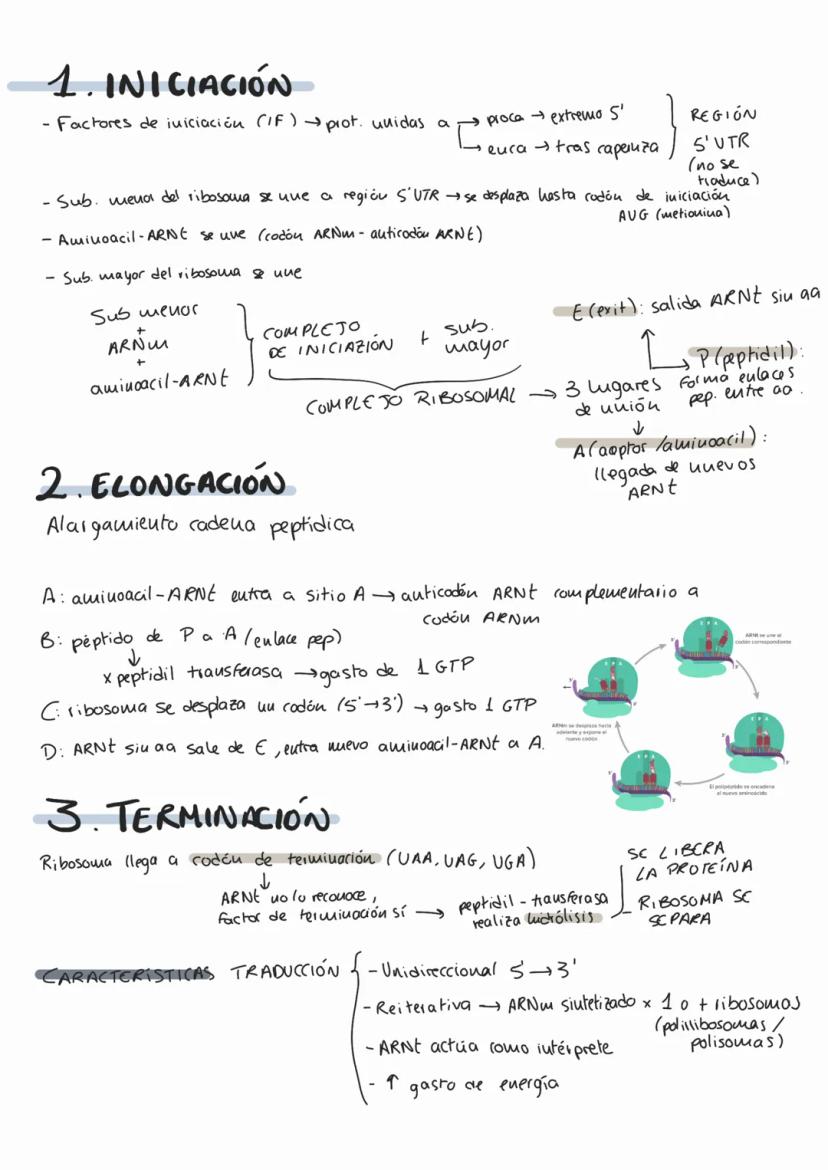 1. INICIACIÓN
- Factores de iniciación (IF) → prot. unidas a → proca → extremo 5'
→ euca → tras caperuza
REGIÓN
5' UTR
(no se
traduce)
- Sub. menor del ribosoma se une a región 5'UTR → se desplaza hasta codón de iniciación
AUG (metionina)
- Aminoacil-ARNt se une (codón ARNm - anticodón ARNt)
- Sub. mayor del ribosoma se une
Sub menor
+
ARNm
+
aminoacil-ARNt
COMPLEJO
DE INICIAZIÓN
+ sub.
mayor
COMPLEJO RIBOSOMAL → 3 lugares
de unión
E (exit): salida ARNt sin aa
P (peptidil):
forma enlaces
pep. entre aa.
A (aceptor/aminoacil):
llegada de nuevos
ARNt
2. ELONGACIÓN
Alargamiento cadena peptídica
A: aminoacil-ARNt entra a sitio A → anticodón ARNt complementario a
codón ARNm
B: péptido de P a A (enlace pep)
↓
x peptidil transferasa → gasto de 1 GTP
C: ribosoma se desplaza un codón (5'→3') → gasto 1 GTP
D: ARNt sin aa sale de E, entra nuevo aminoacil-ARNt a A.
E P A
ARNt se une al
codón correspondiente
E P A
El polipéptido se encadena
al nuevo aminoácido
E P A
E P A
ARNm se desplaza hacia
adelante y expone el
nuevo codón
3. TERMINACIÓN
Ribosoma llega a codón de terminación (UAA, UAG, UGA)
↓
ARNt no lo reconoce,
factor de terminación sí → peptidil-transferasa
realiza hidrólisis
SE LIBERA
LA PROTEÍNA
RIBOSOMA SE
SEPARA
CARACTERÍSTICAS TRADUCCIÓN
- Unidireccional 5'→3'
- Reiterativa → ARNm sintetizado x 1 o + ribosomos
(polirribosomas /
polisomas)
- ARNt actúa como intérprete
- ↑ gasto de energía